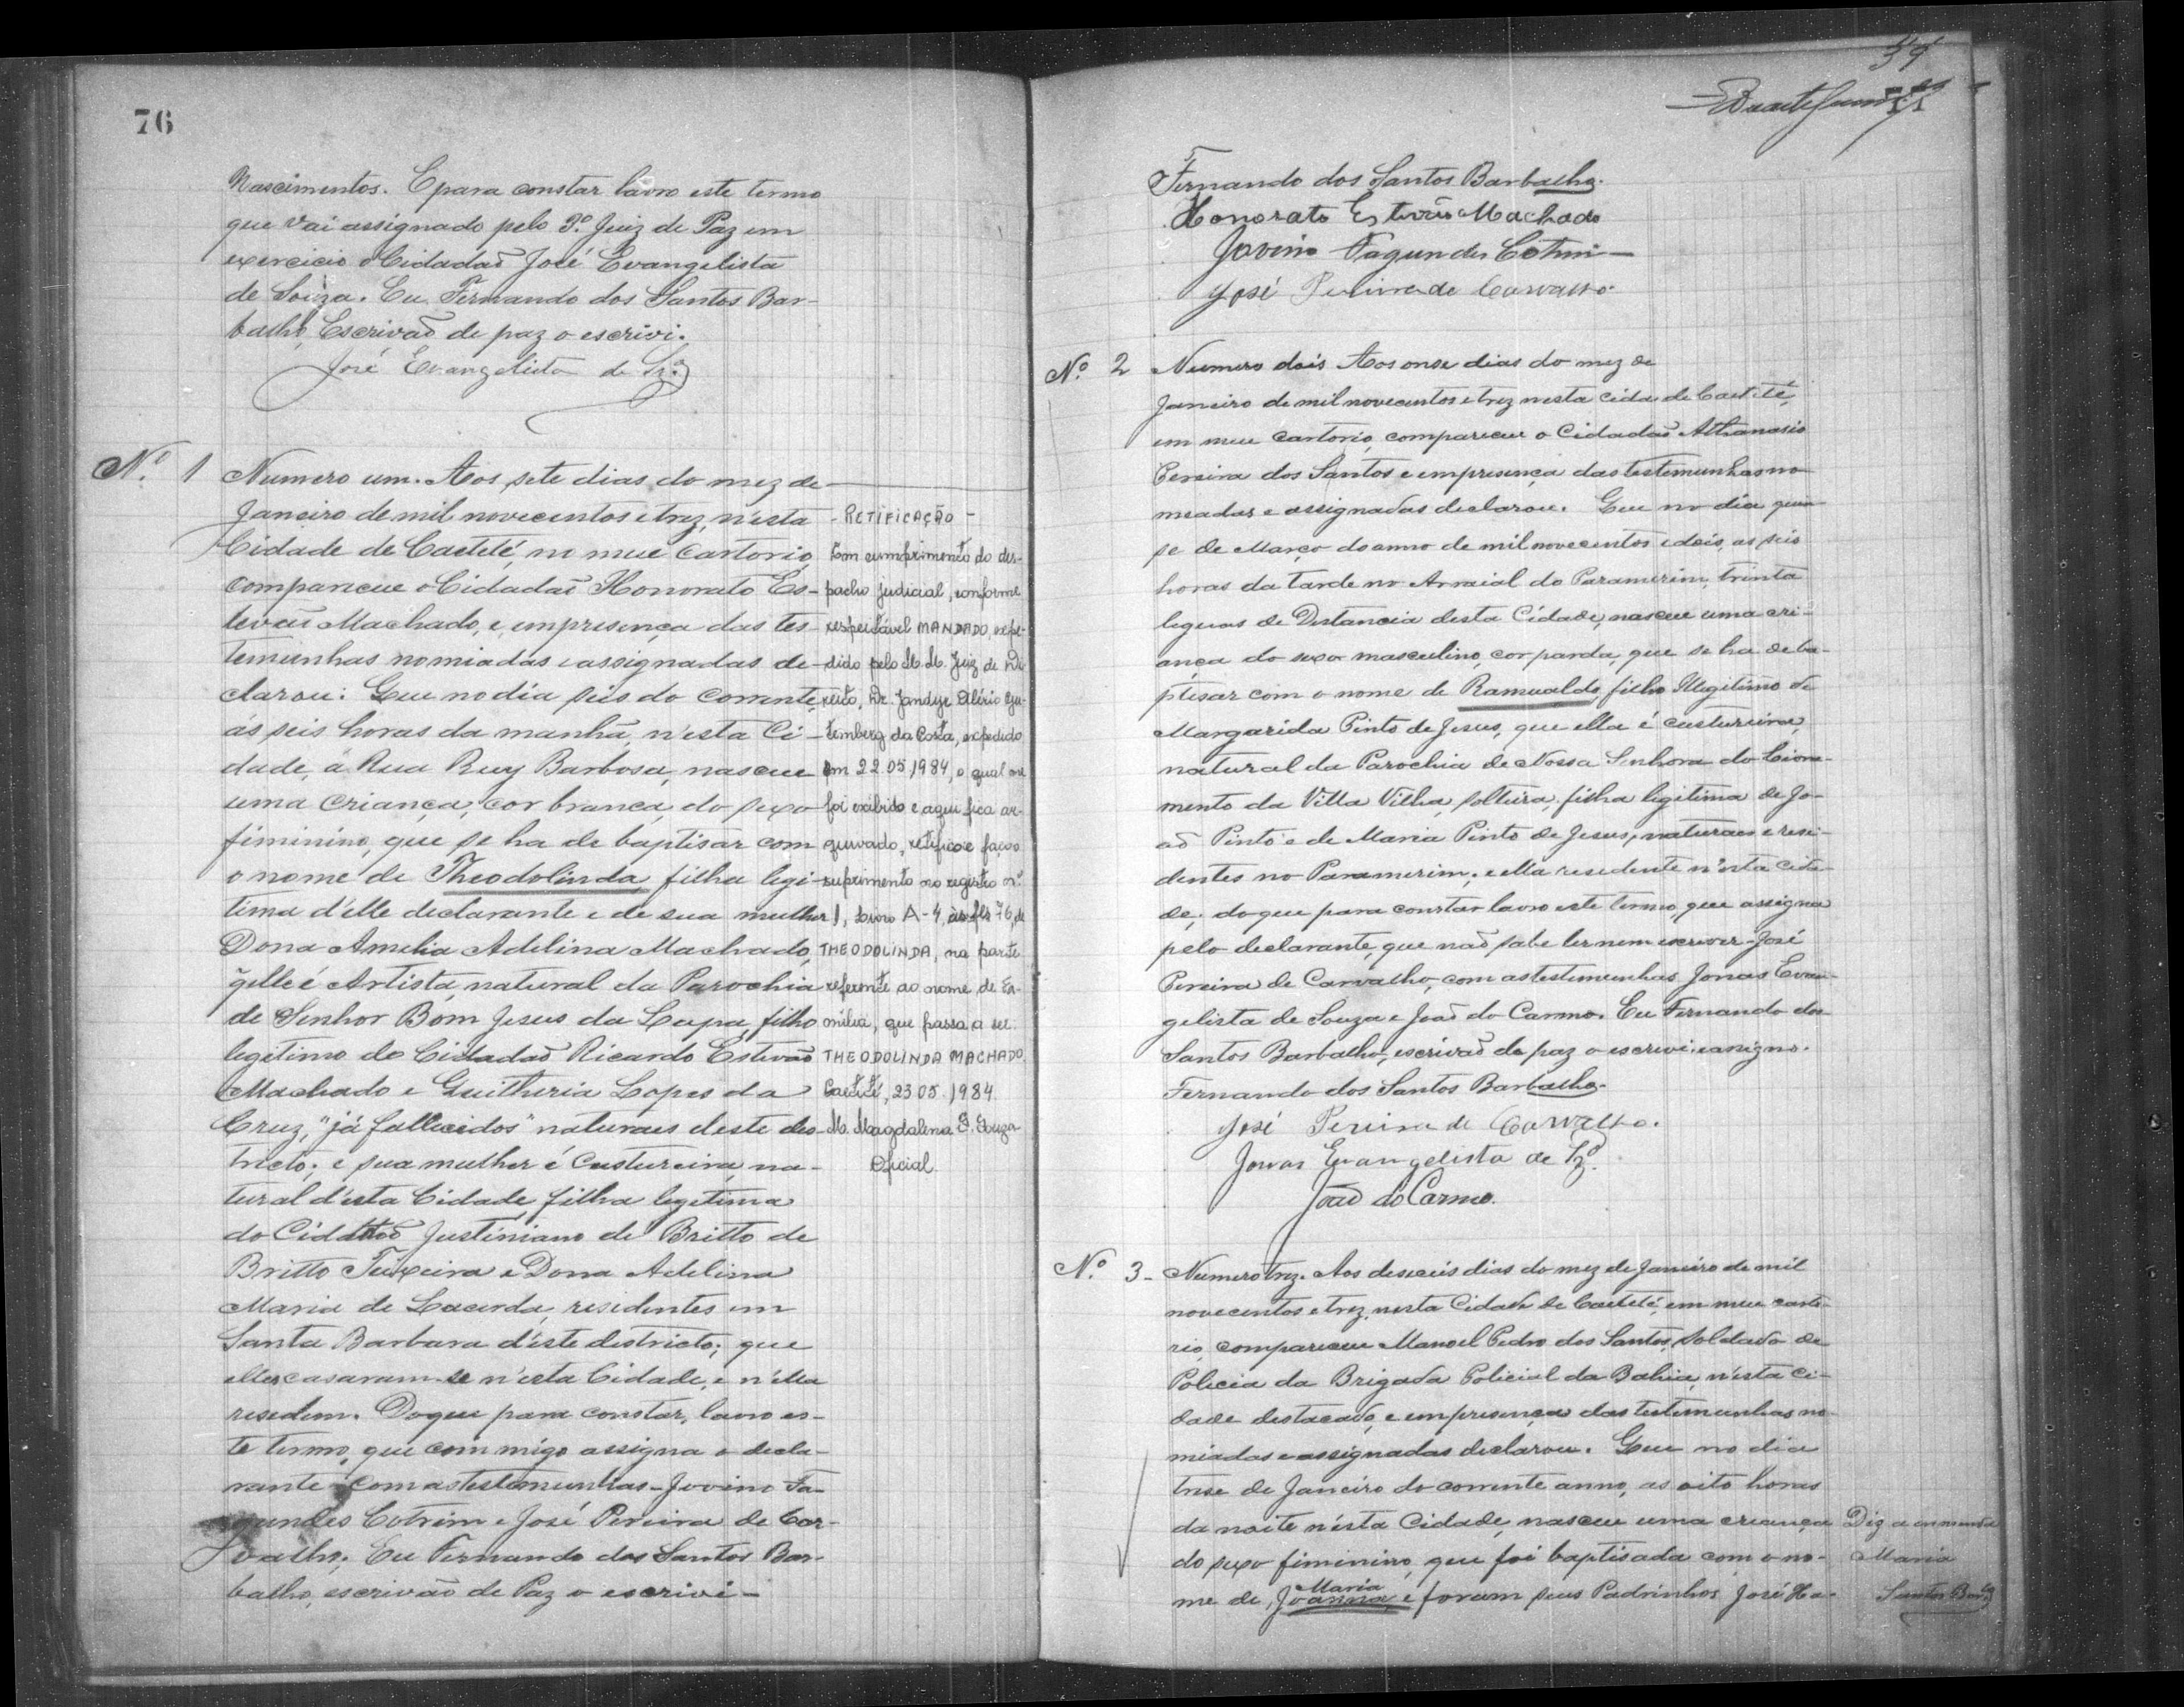 76
Nascimentos. E para constar lavro este termo
que vai assignado pelo 3º. Juiz de Paz em
exercicio o Cidadaõ José Evangelista
de Souza. Eu Fernando dos Santos Bar-
balho, Escrivaõ de paz o escrivi.
José Evangelista de Sz.ª
Nº. 1 Numero um. Aos sete dias do mez de
Janeiro de mil novecentos e trez, n'esta
Cidade de Caeteté, no meu Cartorio,
compareceu o Cidadaõ Honorato Es-
tevaõ Machado, e, em presença das tes-
temunhas nomiadas e assignadas de-
clarou: Que no dia seis do corrente,
ás seis horas da manhã, n'esta Ci-
dade, á Rua Ruy Barbosa, nasceu
uma criança, cor branca, do sexo
fiminino, que se ha de baptisar com
o nome de Theodolinda, filha legi-
tima d'elle declarante e de sua mulher
Dona Amelia Adelina Machado,
q̃ elle é Artista, natural da Parochia
de Senhor Bom Jesus da Lapa, filho
legitimo do Cidadaõ Ricardo Estevaõ
Machado e Guitheria Lopes da
Cruz, "já fallecidos" naturaes deste des-
tricto; e sua mulher é Custureira, na-
tural d'esta Cidade, filha legitima
do Cidadaõ Justiniano de Britto de
Britto Teixeira e Dona Adelina
Maria de Lacerda, residentes em
Santa Barbara d'este districto; que
elles casaram-se n'esta Cidade, e n'ella
residem. Do que para constar, lavro es-
te termo, que commigo assigna o decla-
rante com as testemunhas - Jovino Fa-
gundes Cotrim e José Pereira de Car-
valho. Eu Fernando dos Santos Bar-
balho, escrivão de Paz o escrivi -
- RETIFICAÇÃO -
Em cumprimento do des-
pacho judicial, conforme
respeitável MANDADO, expe-
dido pelo M. M. Juiz de Di-
reito, Dr. Jandyr Alírio Gu-
temberg da Costa, expedido
em 22.05.1984, o qual me
foi exibido e aqui fica ar-
quivado, retifico e faço o
suprimento no registro nº
1, Livro A-4, às fls 76, de
THEODOLINDA, na parte
referente ao nome de fa-
mília, que passa a ser
THEODOLINDA MACHADO.
Caetité, 23.05.1984.
M. Magdalena P. Souza
Oficial.
Fernando dos Santos Barbalho.
Honorato Estevão Machado
Jovino Fagundes Cotrim
José Pereira de Carvalho
Nº. 2 Numero dois Aos onse dias do mez de
Janeiro de mil novecentos e trez nesta cida de Caeteté,
em meu Cartorio, compareceu o Cidadaõ Athanasio
Pereira dos Santos e em presença das testemunhas no-
meadas e assignadas declarou. Que no dia quin-
se de Março do anno de mil novecentos e dois, as seis
horas da tarde no Arraial do Paramerim, trinta
leguas de Distancia desta Cidade, nasceu uma cri-
ança do sexo masculino, cor parda, que se ha de ba-
ptisar com o nome de Ramualdo, filho Illegitimo de
Margarida Pinto de Jesus, que ella é custureira,
natural da Parochia de Nossa Senhora do Livra-
mento da Villa Vilha, solteira, filha legitima de Jo-
aõ Pinto e de Maria Pinto de Jesus, naturaes e resi-
dentes no Paramerim; e ella residente n'esta cida-
de; do que para constar lavro este termo, que assigna
pelo declarante, que naõ sabe ler nem escrever - José
Pereira de Carvalho, com as testemunhas Jonas Evan-
gelista de Souza e Joaõ do Carmo. Eu Fernando dos
Santos Barbalho, escrivaõ de paz o escrevi e assigno.
Fernando dos Santos Barbalho.
José Pereira de Carvalho.
Jonas Evangelista de Sz.ª
Joaõ do Carmo.
Nº. 3 - Numero trez. Aos deseceis dias do mez de Janeiro de mil
novecentos e trez, nesta Cidade de Caeteté, em meu carto-
rio, compareceu Manoel Pedro dos Santos, soldado de
Policia da Brigada Policial da Bahia, n'esta Ci-
dade destacado, e em presença das testemunhas no-
miadas e assignadas declarou. Que no dia
trese de Janeiro do corrente anno, as oito horas
da noite n'esta Cidade, nasceu uma criança
do sexo fiminino, que foi baptisada com o no-
Maria
me de, Joanna, e foram seus Padrinhos José
Diz a emmenda
Maria
Santos Barº